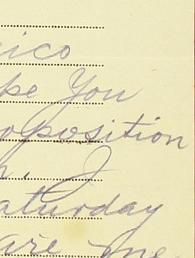 ico
pe You
oposition
n. I
aturday
are me